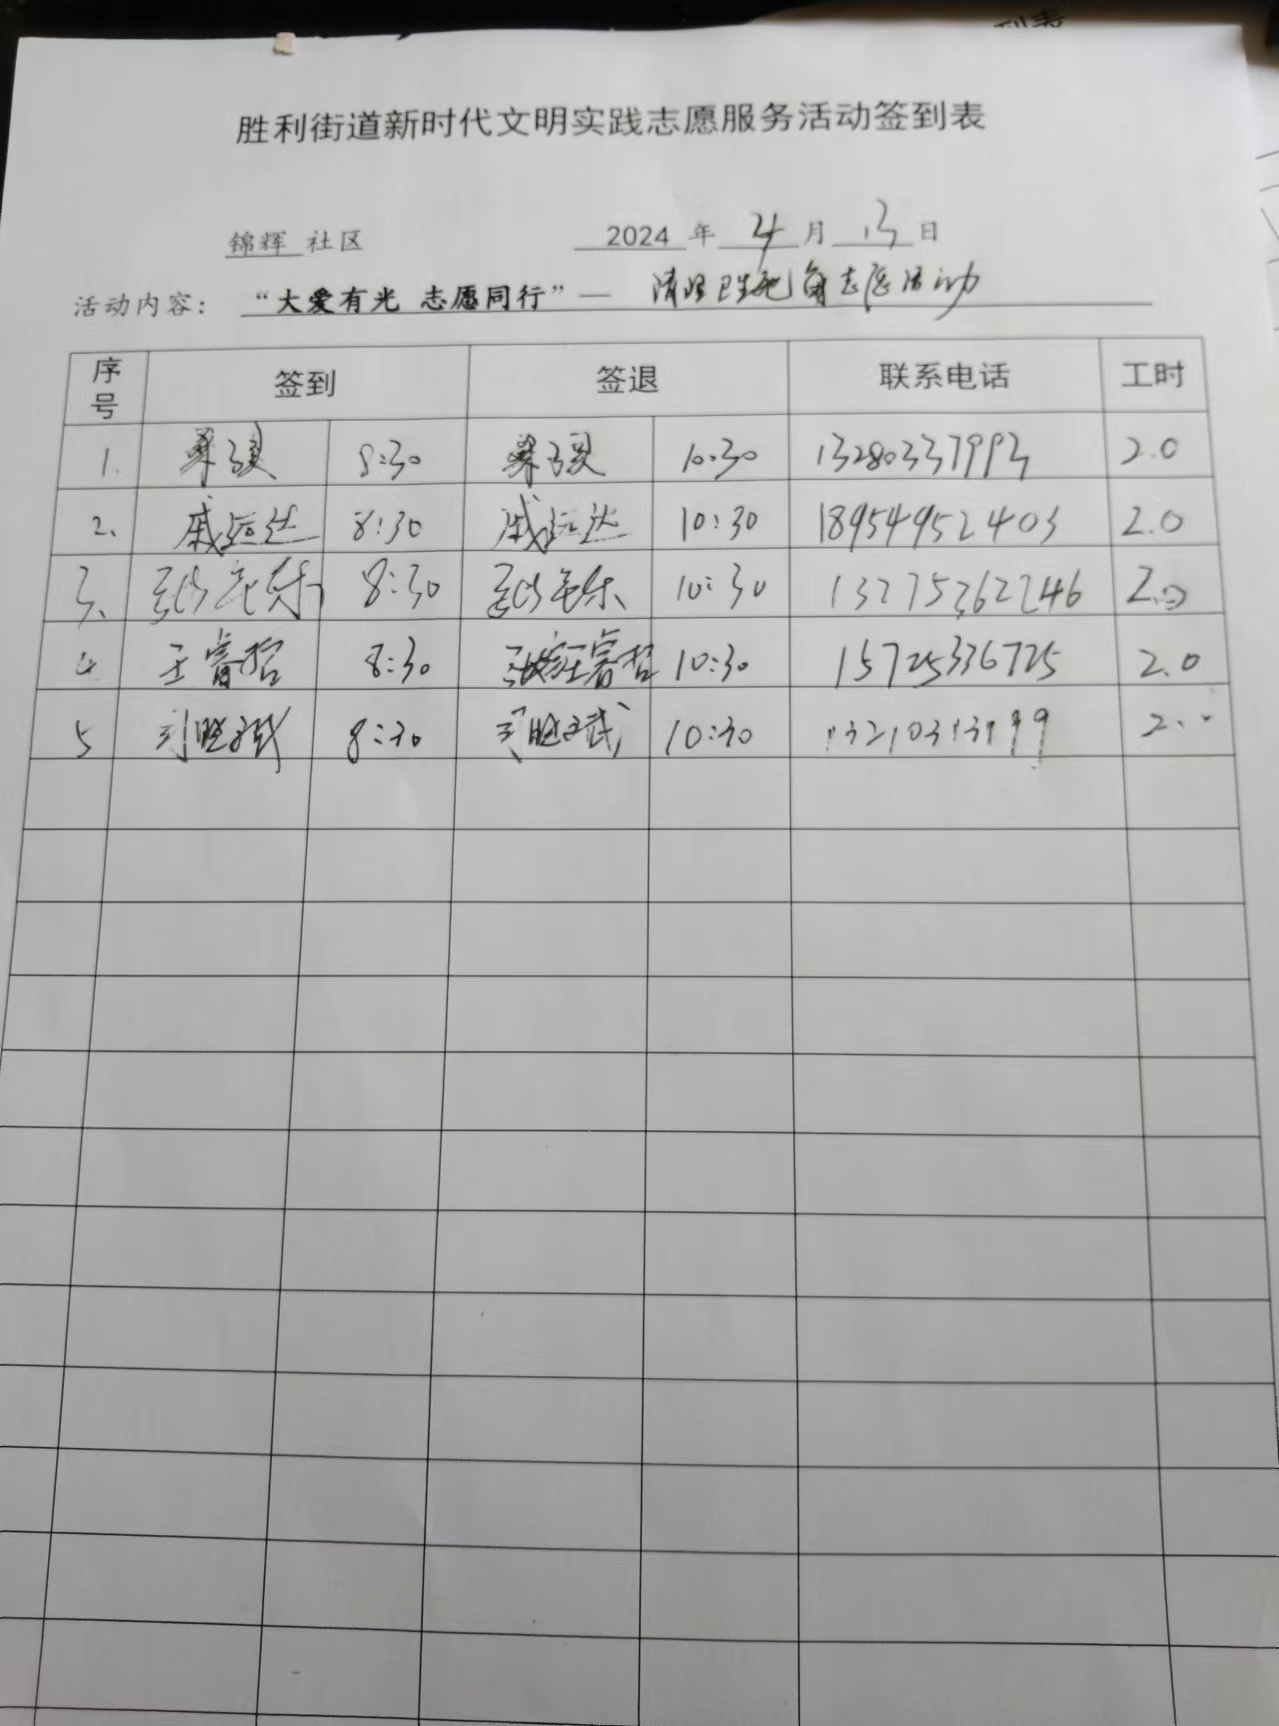 胜利街道新时代文明实践志愿服务活动签到表
锦辉 社区 2024 年 4 月 13 日
活动内容： “大爱有光 志愿同行”— 清理卫生死角志愿活动
序号 签到 签退 联系电话 工时
1. 8:30 10:30 13280337993 2.0
2. 戚运达 8:30 戚运达 10:30 18954952403 2.0
3. 8:30 10:30 13275362246 2.0
4 王睿哲 8:30 王睿哲 10:30 15725336725 2.0
5 8:30 10:30 2.